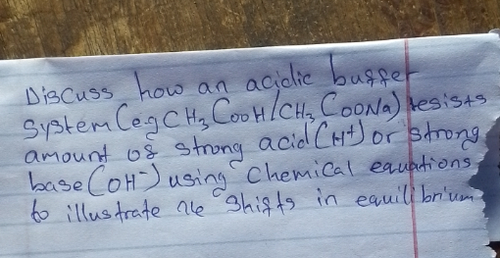 Discuss how an acidic buffer
system (eg CH₃COOH/CH₃COONa) resists
amount of strong acid (H⁺) or strong
base (OH⁻) using Chemical equations
to illustrate the shifts in equilibrium